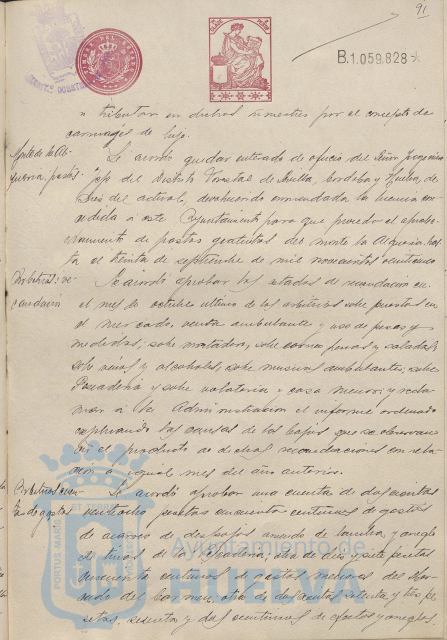 91
B.1.059.828
tributar en dichos trimestres por el concepto de
carruajes de lujo.
Monte de la Al-
queria, pastos.
Se acordó quedar enterado de oficio del Señor Ingeniero
Jefe del Distrito Forestal de Sevilla, Cordoba y Huelva, de
tres del actual, devolviendo enmendada la licencia con-
cedida a este Ayuntamiento para que proceda al aprove-
chamiento de pastos gratuitos del monte la Alqueria, has-
ta el treinta de septiembre de mil novecientos
Arbitrios: re-
caudación
Se acordó aprobar los estados de recaudacion en
el mes de octubre ultimo de los arbitrios sobre puestos en
el mercado, venta ambulante y uso de pesas y
medidas, sobre matadero, sobre carnes frescas y saladas,
sobre vinos y alcoholes, sobre musicas ambulantes, sobre
Pescaderia y sobre volateria y caza menor; y recla-
mar a la Administracion el informe ordenado
explicando las causas de las bajas que se observan
en el producto de dichas recaudaciones con rela-
cion a igual mes del año anterior.
Arbitrios: cuen-
tas de gastos
Se acordó aprobar una cuenta de doscientas
pesetas cincuenta centimos de gastos
de acarreo de despojos, arriendo de y arreglo
de de la Pescaderia, otra de diez y siete pesetas
cincuenta centimos de gastos menores del Mer-
cado del Carmen, otra de doscientas setenta y tres pe-
setas, sesenta y dos centimos de efectos y arreglos
Ayuntamiento de
HUELVA
PORTUS MARIS